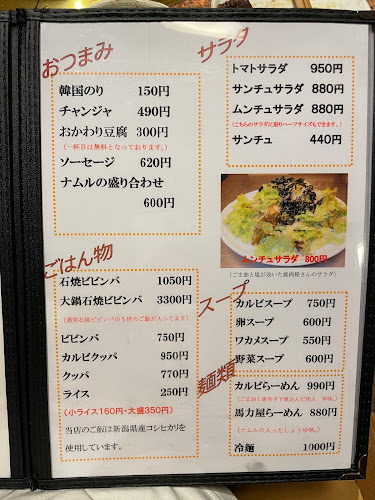 おつまみ
韓国のり 150円
チャンジャ 490円
おかわり豆腐 300円
(一杯目は無料となっております。)
ソーセージ 620円
ナムルの盛り合わせ
600円
サラダ
トマトサラダ 950円
サンチュサラダ 880円
ムンチュサラダ 880円
(こちらのサラダに限りハーフサイズもできます。)
サンチュ 440円
ムンチュサラダ 800円
(ごま油と塩が効いた焼肉屋さんのサラダ)
ごはん物
石焼ビビンバ 1050円
大鍋石焼ビビンバ 3300円
(通常石焼ビビンバの5倍のご飯が入ってます)
ビビンバ 750円
カルビクッパ 950円
クッパ 770円
ライス 250円
(小ライス160円・大盛350円)
当店のご飯は新潟県産コシヒカリを
使用しています。
スープ
カルビスープ 750円
卵スープ 600円
ワカメスープ 550円
野菜スープ 600円
麺類
カルビらーめん 990円
(ごま油と唐辛子で煮込んだ肉入 辛味。)
馬力屋らーめん 880円
(ナムルの入ったしょうゆ味。)
冷麺 1000円